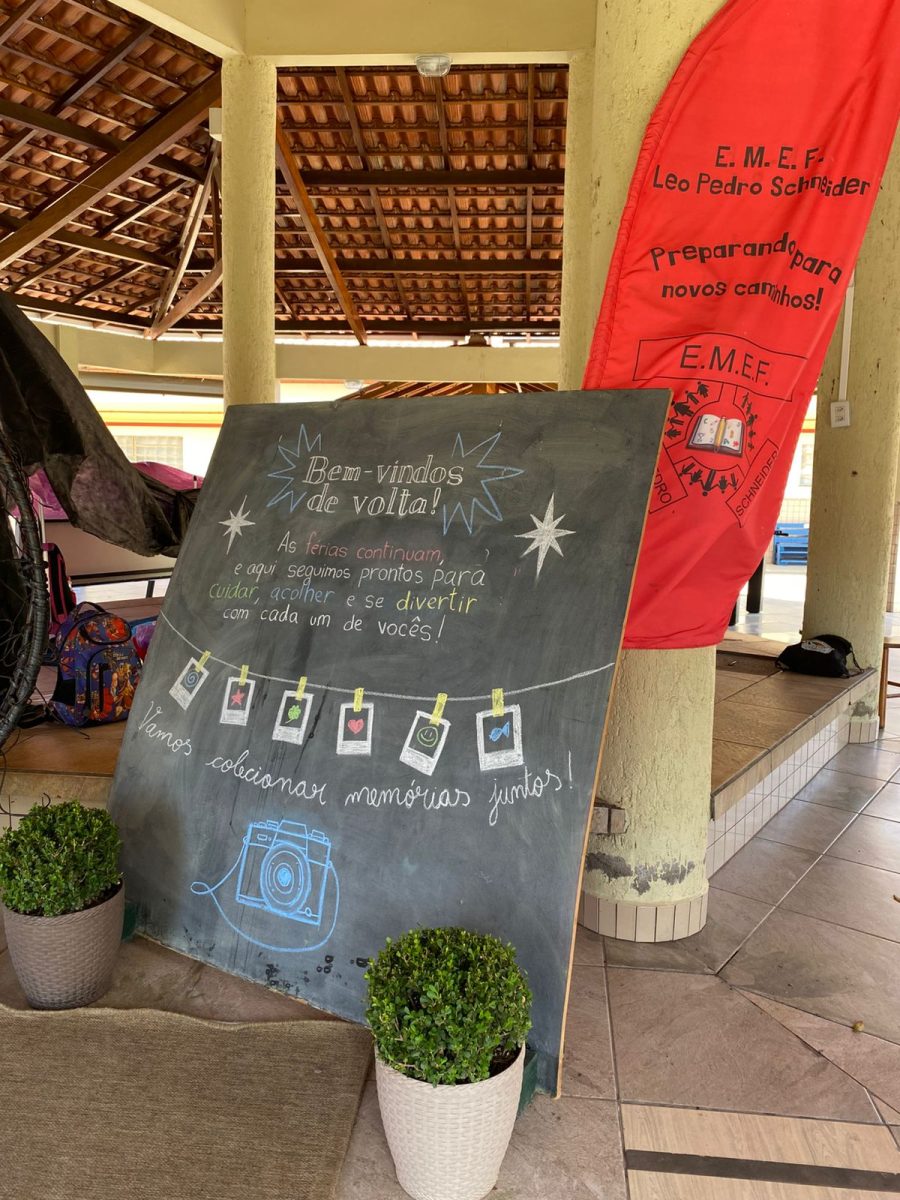 E. M. E. F.
Leo Pedro Schneider
Preparando para
novos caminhos!
E.M.E.F.
SCHNEIDER
Bem-vindos
de volta!
As férias continuam,
e aqui seguimos prontos para
cuidar, acolher e se divertir
com cada um de vocês!
Vamos colecionar memórias juntos!